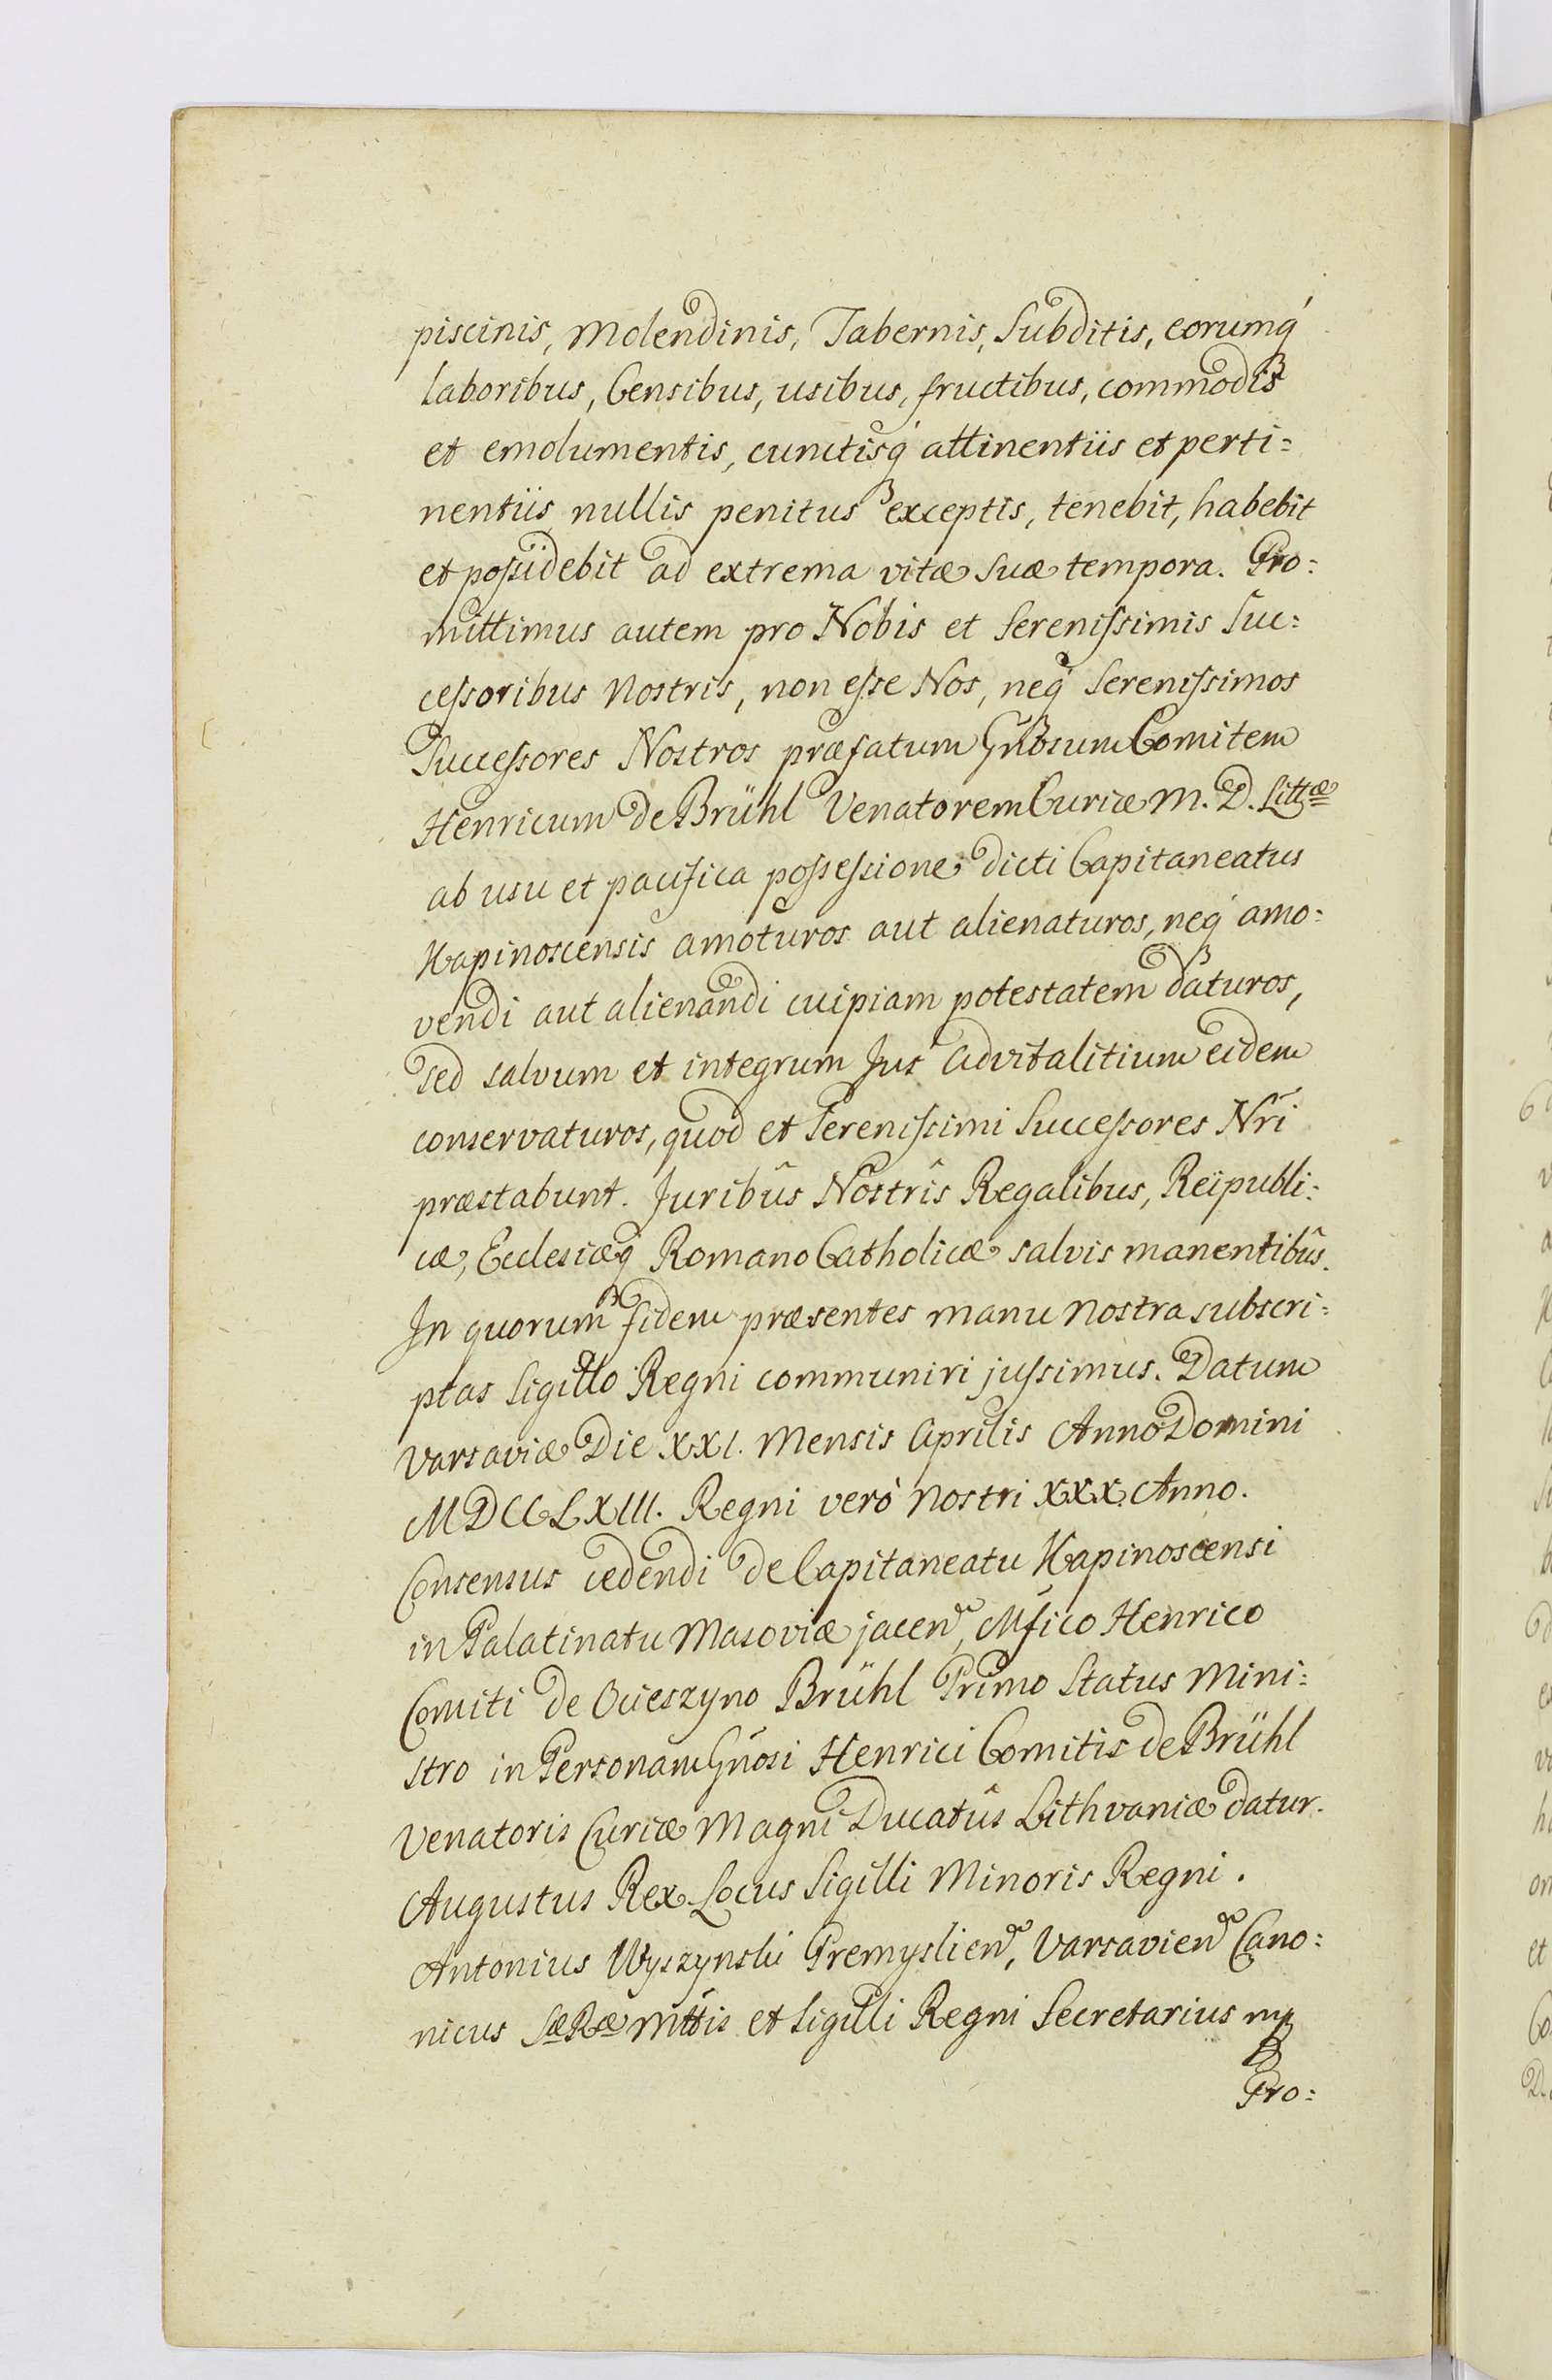 piscinis, Molendinis, Tabernis, Subditis, eorumq́
laboribus, Censibus, usibus, fructibus, commodis
et emolumentis, cunctisq́ attinentiis et perti=
nentiis nullis penitus exceptis, tenebit, habebit
et poſsidebit ad extrema vitæ suæ tempora. Pro=
mittimus autem pro Nobis et Sereniſsimis Suc=
ceſsoribus Nostris, non eſse Nos, neq́ Sereniſsimos
Succeſsores Nostros præfatum Gnosum Comitem
Henricum de Brühl Venatorem Curiæ M. D. Littæ
ab usu et pacifica poſseſsione dicti Capitaneatus
Kapinoscensis amoturos aut alienaturos, neq́ amo=
vendi aut alienandi cuipiam potestatem daturos,
sed salvum et integrum Jus advitalitium eidem
conservaturos, quod et Sereniſsimi Succeſsores Nri
præstabunt. Juribûs Nostrîs Regalibus, Reipubli=
cæ, Ecclesiæq́ Romano Catholicæ salvis manentibûs.
In quorum fidem præsentes manu Nostra subscri=
ptas Sigillo Regni communiri juſsimus. Datum
Varsaviæ Die XXI. Mensis Aprilis Anno Domini
MDCCLXIII. Regni verò Nostri XXX Anno.
Consensus cedendi de Capitaneatu Kapinoscensi
in Palatinatu Masoviæ jacen, Mfico Henrico
Comiti de Ocieszyno Brühl Primo Status Mini=
stro in Personam Gnosi Henrici Comitis de Brühl
Venatoris Curiæ Magni Ducatûs Lithvaniæ datur.
Augustus Rex Locus Sigilli Minoris Regni.
Antonius Wyszynski Premyslien, Varsavien Cano=
nicus SæRæ Mttis et Sigilli Regni Secretarius mp
Pro=